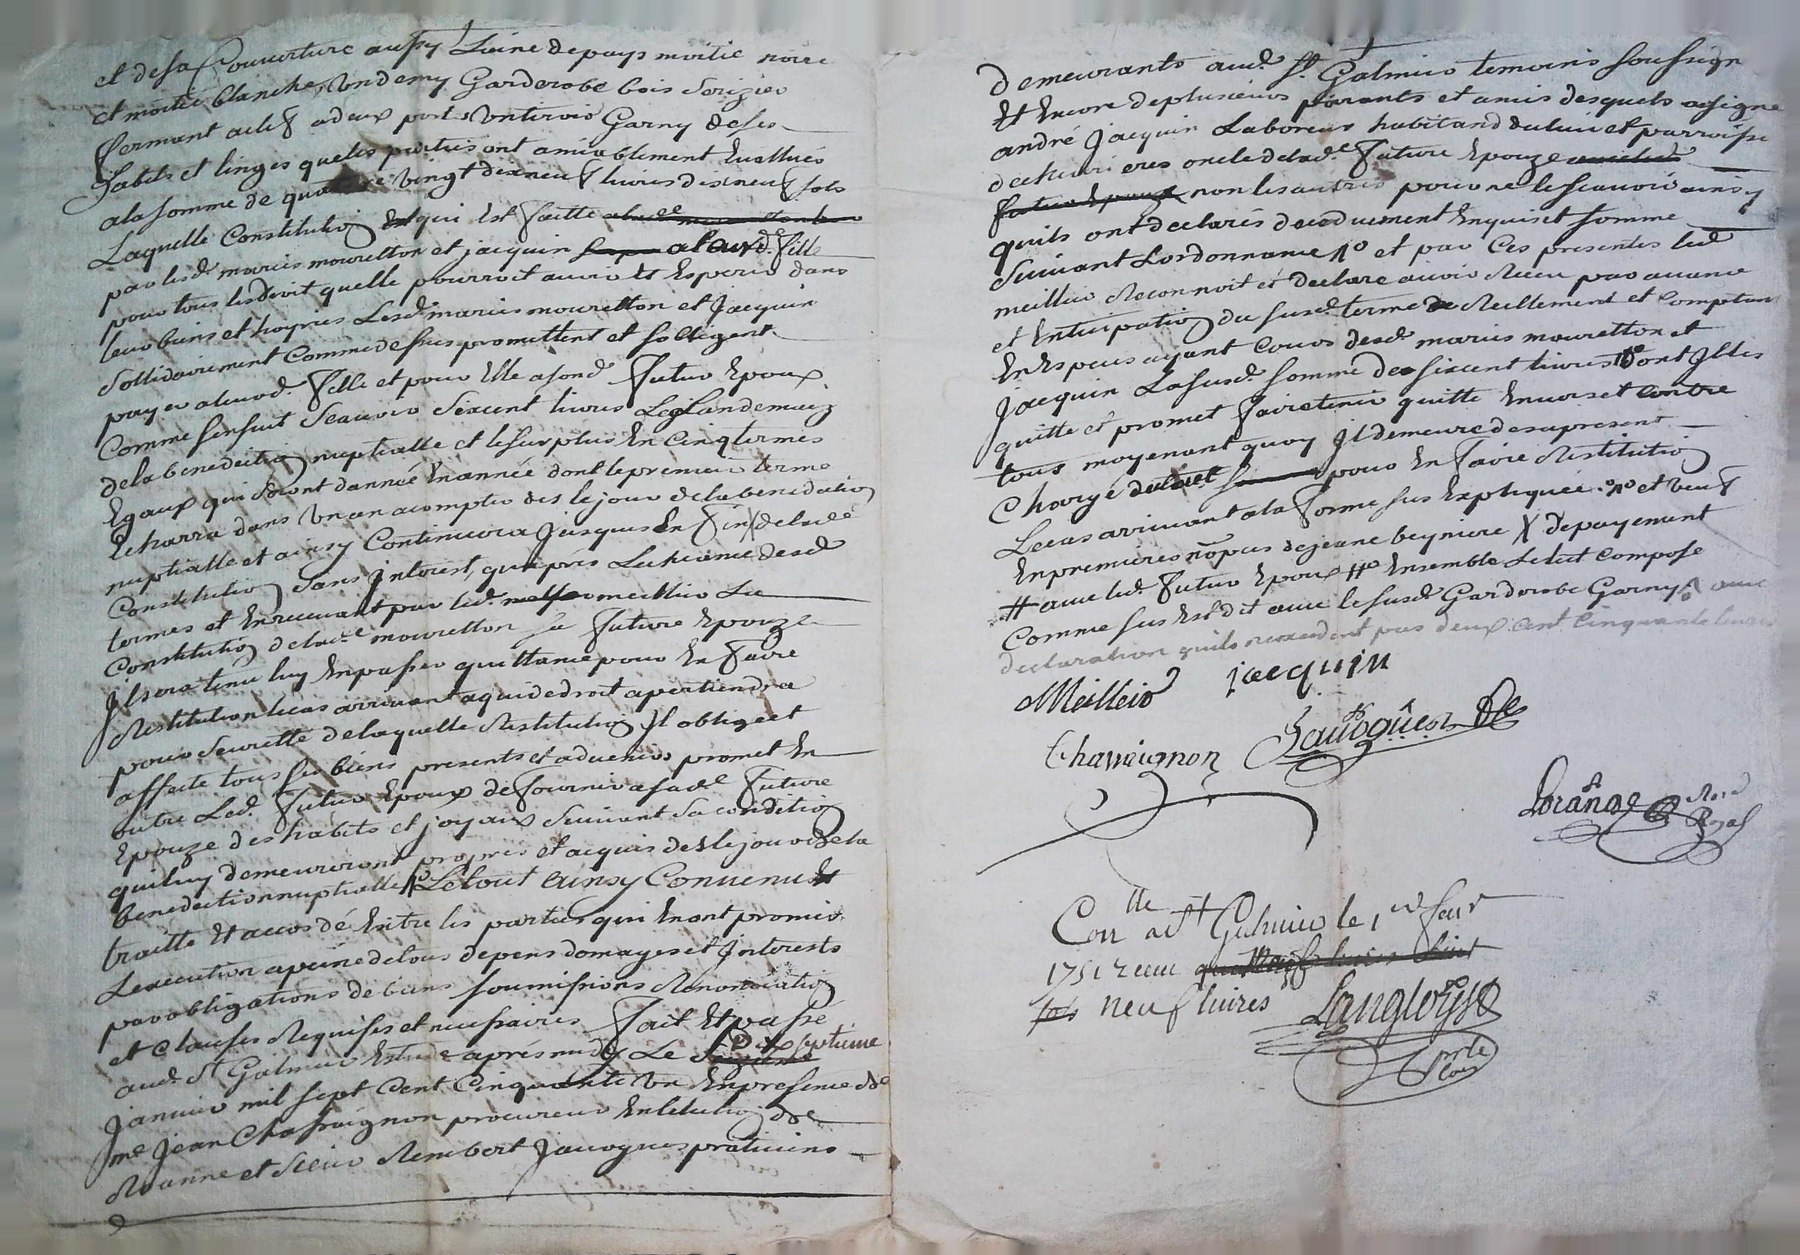 et de sa Couverture aussy Laine de pays moitié noire
et moitié blanche, un demy Garderobe bois Serizier
fermant a clef a deux portes un tiroir Garny de ses
habits et linges que les parties ont amiablement Evallués
a la somme de quatre vingt dixneuf livres dixneuf sols
Laquelle Constitution qui Est faitte
par lesd. mariés mouretton et jacquin a lad. fille
pour tous les droit quelle pourroit avoir et Esperer dans
leur biens et hoyries Lesd. mariés mouretton et Jacquin
Sollidairement Comme dessus promettent et sobligent
payer a leurd. fille et pour Elle a sond. futur Epoux
Comme sensuit Seavoir Sixcent livres Le Landemain
de la benediction nuptialle et le surplus En cinq termes
Egaux qui Seront dannée En année dont le premier terme
Echerra dans un an a compter dès le jour de la benediction
nuptialle et ainsy Continuera jusques En fin de lad.e
Constitution Sans Interest, qu'après Lecheance desd.
termes et En recevant par led. meillier La
Constitution de lad.e mouretton sa future Epouze
Il sera tenu luy En passer quittance pour En faire
Restitution le cas arrivant a qui de droit apertiendra
pour Seurette de laquelle Restitution Il oblige et
affecte tous ses biens presents et advenir promet En
outre Led. futur Epoux de fournir a sad.e future
Epouze des habits et joyaux Suivant Sa condition
qui luy demeureront propres et acquis dès le jour de la
benediction nuptialle Le tout ainsy Convenu
traitté Et accordé Entre les parties qui En ont promis
Lexecution a peine de tous depens domages et Interests
par obligations de biens soumissions Renonciation
et Clauses Requises et necessaires fait Et passé
aud. St Galmier Estude après midy Le Dix septième
Janvier mil sept Cent Cinquante un En presence de
me Jean Chassaignon procureur En lelection de
Roanne et Sieur Rembert Javogues praticiens
Demeurants aud. St Galmier temoins soussigné
Et Encore de plusieurs parants et amis desquels a signé
andré Jacquin Laboreur habitand du lieu et parroisse
de chevrieres oncle de lad.e future Epouze
non les autres pour ne le scavoir ainsy
quils ont declarés de ce duement Enquis et somme
Suivant Lordonnance et par Ces presentes led.
meillier Reconnoit et declare avoir Receu par avance
et Enticipation du susd. terme Reellement et comptant
En Especes ayant cours desd. mariés mouretton et
Jacquin La susd. somme de sixcent livres dont Il les
quitte et promet faire tenir quitte Envers et contre
tous moyenant quoy Il demeure des a present
Chargé pour En faire Restitution
Le cas arrivant a la forme sus Expliquée et veuf
En premieres nopces de jeane beyniere X de payement
# avec led. futur Epoux Ensemble Le lict Composé
Comme sus Est dit avec le susd. Garderobe Garny avec
declaration quils nexcedent pas deux cent cinquante livres
Meillier jacquin
Chassaignon Javogues
Lorange Nore Royal
Conlle a St Galmier le 1er fevr
1751 receu
neuf livres Langlois